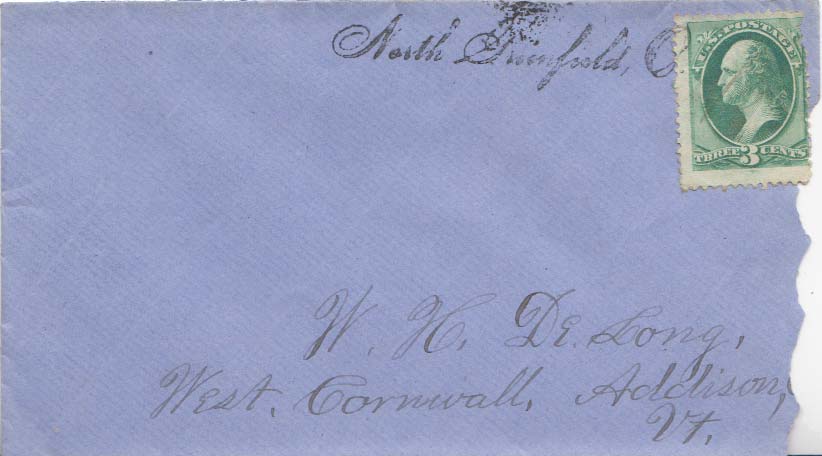 North Fairfield, O
U.S. POSTAGE
THREE 3 CENTS
W. H. De Long,
West. Cornwall, Addison,
Vt.